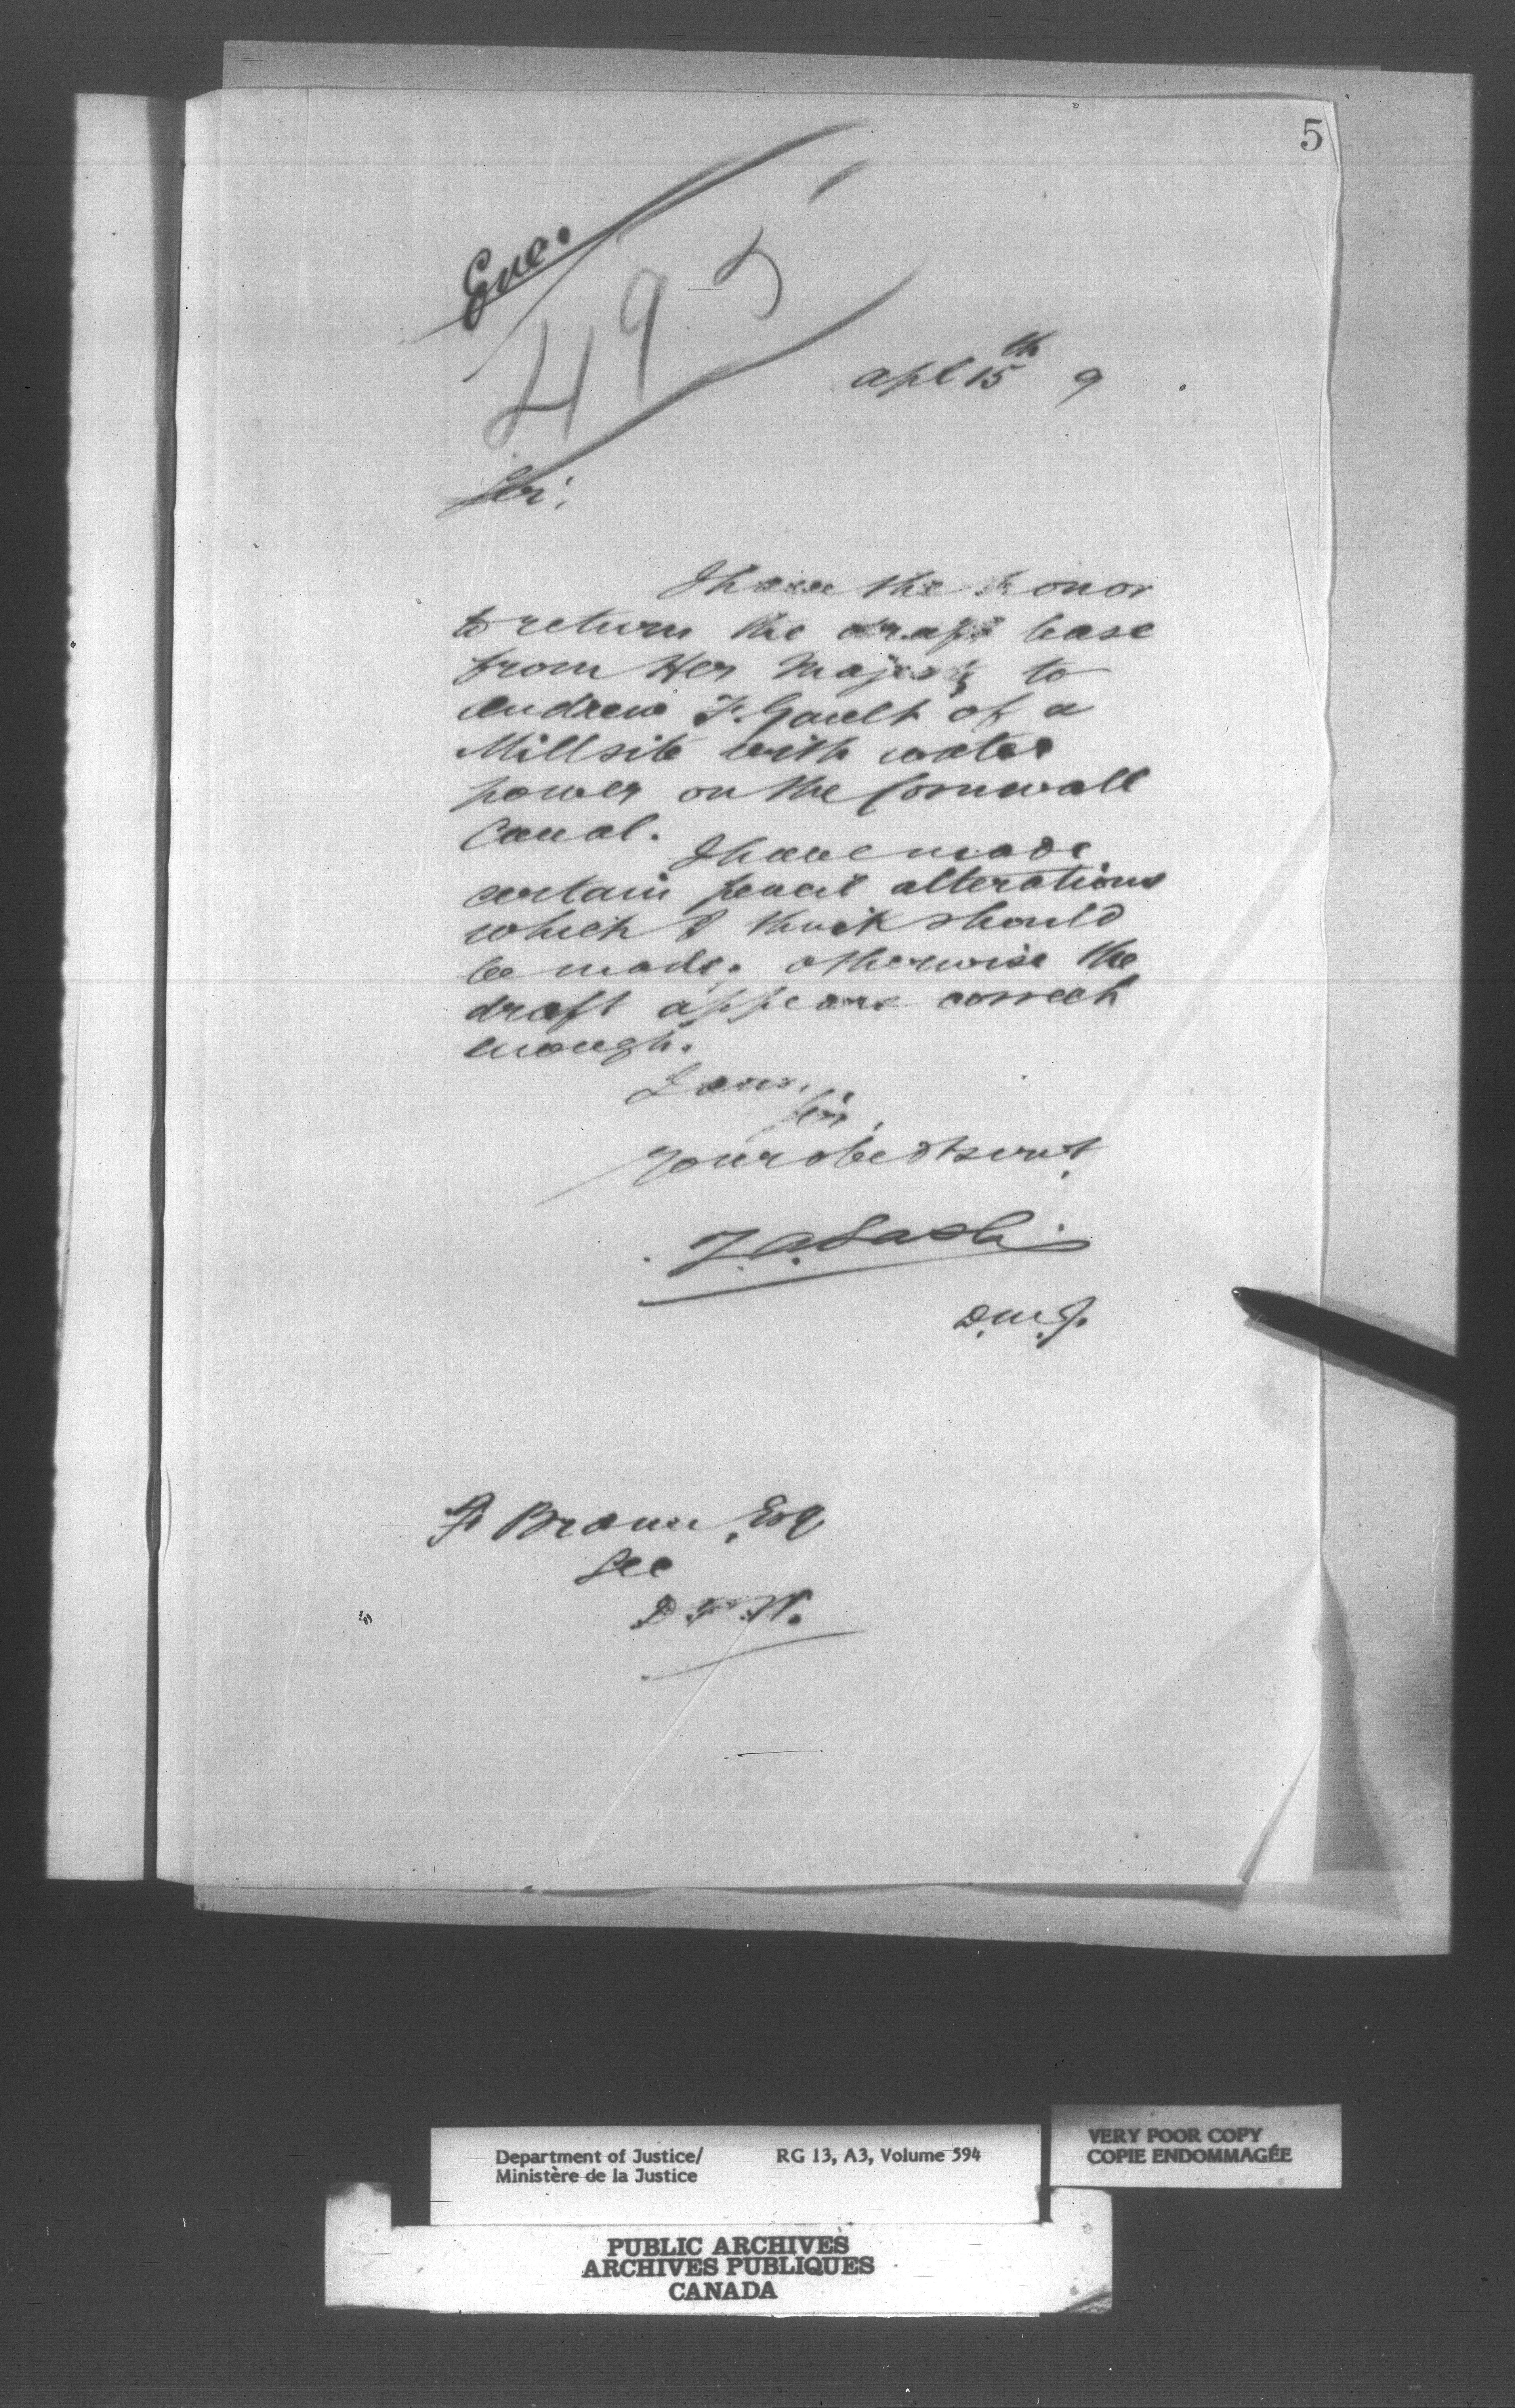 5
Enc.
495
Apl 15th 9
Sir,
I have the honor
to return the draft lease
from Her Majesty to
Andrew F. Gault of a
Millsite with water
power on the Cornwall
Canal.
I have made
certain pencil alterations
which I think should
be made. otherwise the
draft appears correct
enough.
I am,
Sir,
Your obedt servt
Z. A. Lash
D.M.J.
F Braun, Esq
Sec
D P W.
Department of Justice/
Ministère de la Justice
RG 13, A3, Volume 594
VERY POOR COPY
COPIE ENDOMMAGÉE
PUBLIC ARCHIVES
ARCHIVES PUBLIQUES
CANADA